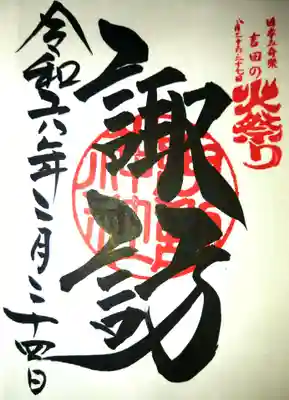 日本三奇祭
吉田の
火祭り
八月二十六・二十七日
諏訪
令和六年二月二十四日